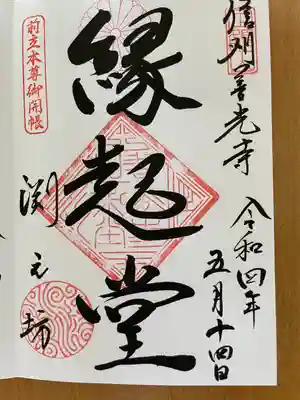 信州善光寺
令和四年
五月十四日
縁起堂
前立本尊御開帳
渕之坊